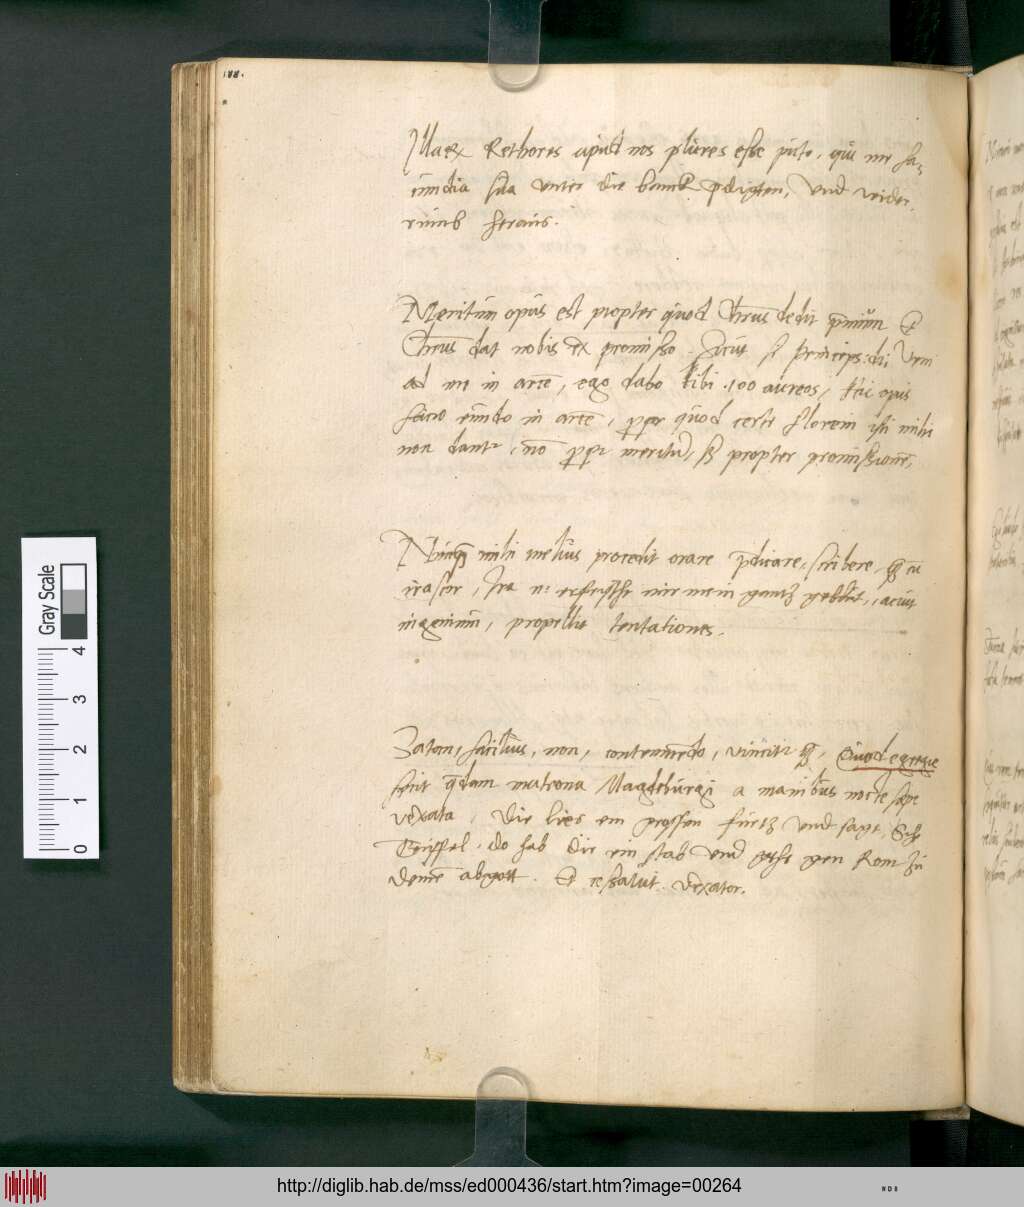 188.
Marx Rethores apud nos plures esse puto, qui me fa-
cundia sua unter die banck pdigten, und wider-
rumb heraus.
Meritum opus est propter quod Chrus dedit pmium Et
Chrus dat nobis ex promisso. Sicut si princeps: di Veni
ad me in arce, ego dabo tibi .100 aureos, hic opus
facio eundo in arce, ppter quod certe floreni isti mihi
non dantr, no ppr meritu, sz propter promissione,
Nunq mihi melius procedit orare pdicare, scribere, q cu
irascor, Ira n. erfrischt mir mein gantz geblut, acuit
ingenium, propellit tentationes.
Satan, facilius, non, contemnedo, vincitr q, Quod egregie
fecit qdam matrona Magdeburgi a manibus nocte sepe
vexata, Die lies ein grossen furtz und sagt, Sihe
Teuffel, do hab dir ein stab und gehe gen Rom zu
deinem abgott. Et cessavit vexator.
Gray Scale
0 1 2 3 4
http://diglib.hab.de/mss/ed000436/start.htm?image=00264